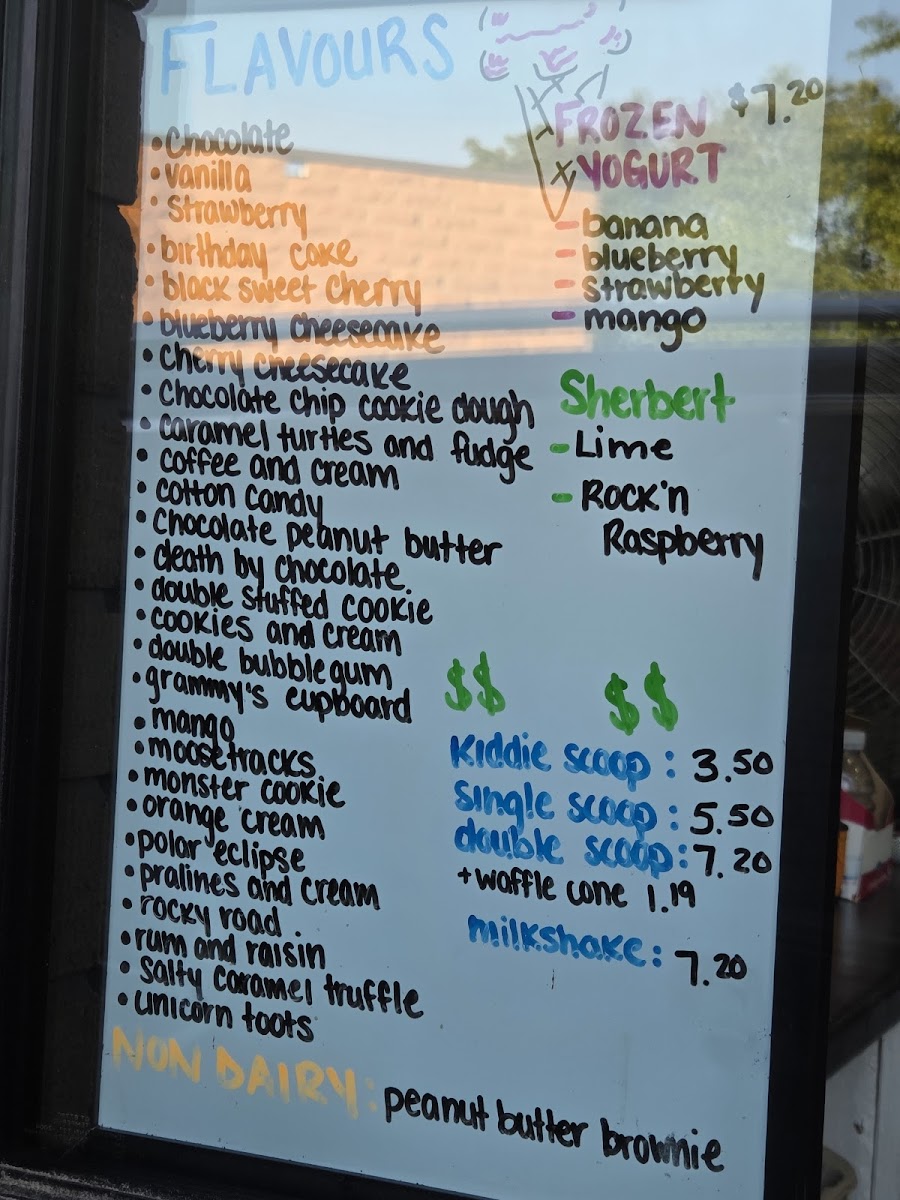 FLAVOURS
• Chocolate
• vanilla
• strawberry
• birthday cake
• black sweet cherry
• blueberry cheesecake
• cherry cheesecake
• chocolate chip cookie dough
• caramel turtles and fudge
• coffee and cream
• cotton candy
• chocolate peanut butter
• death by chocolate
• double stuffed cookie
• cookies and cream
• double bubblegum
• grammy's cupboard
• mango
• moosetracks
• monster cookie
• orange cream
• polar eclipse
• pralines and cream
• rocky road
• rum and raisin
• salty caramel truffle
• unicorn toots
NON DAIRY: peanut butter brownie
FROZEN $7.20
YOGURT
- banana
- blueberry
- strawberry
- mango
Sherbert
- Lime
- Rock'n
Raspberry
$$ $$
Kiddie scoop: 3.50
single scoop: 5.50
double scoop: 7.20
+ waffle cone 1.19
milkshake: 7.20